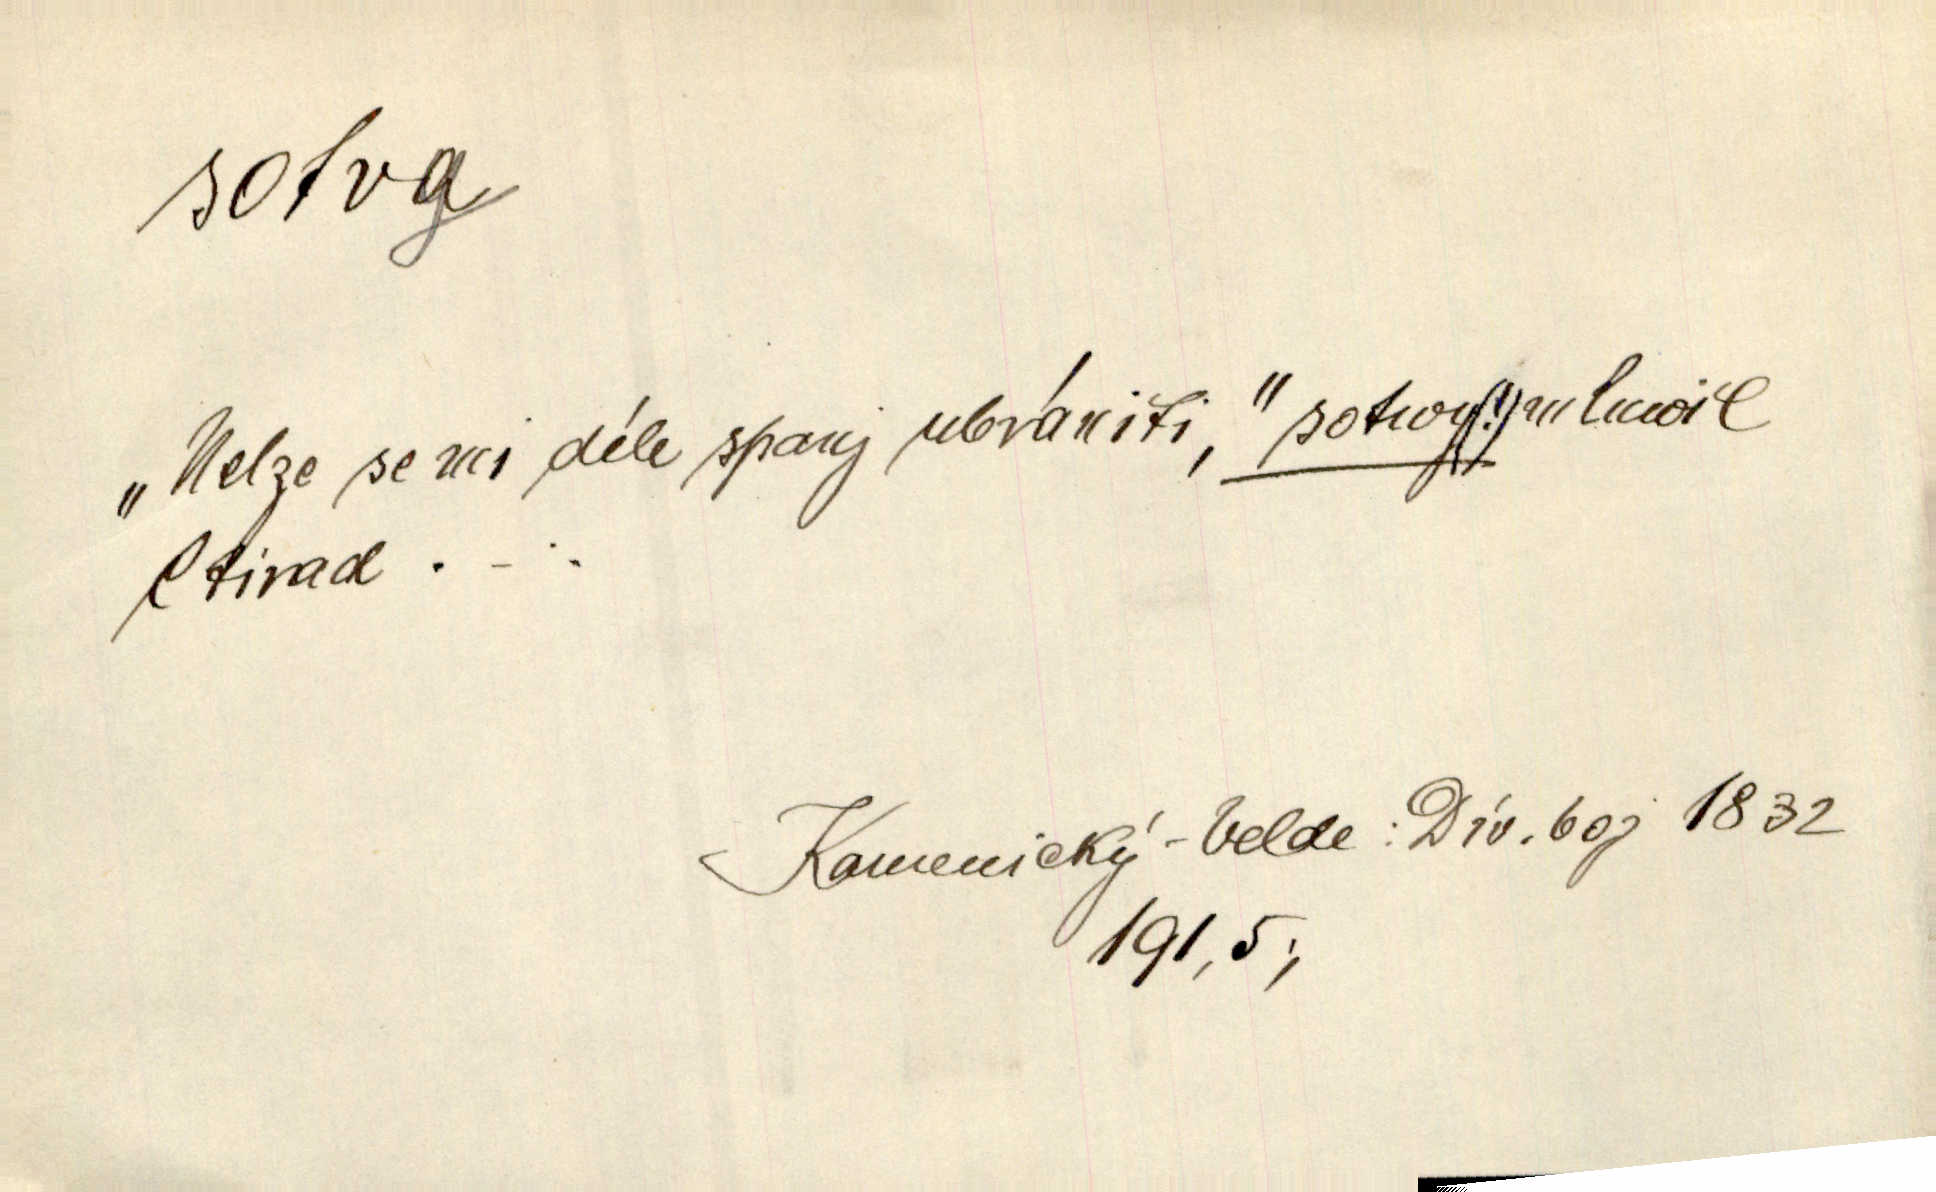 sotva
„Nelze se mi déle spanj ubrániti,“ sotwy(!) mluwil
Ctirad . - . .
Kamenický - Velde : Dív. boj 1832
191, 5;